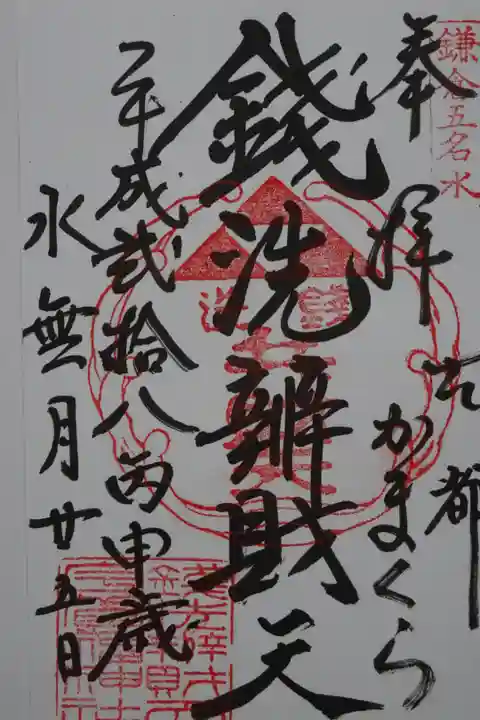 鎌倉五名水
奉拝
古都
かまくら
錢洗辨財天
平成弐拾八丙申歳
水無月廿五日